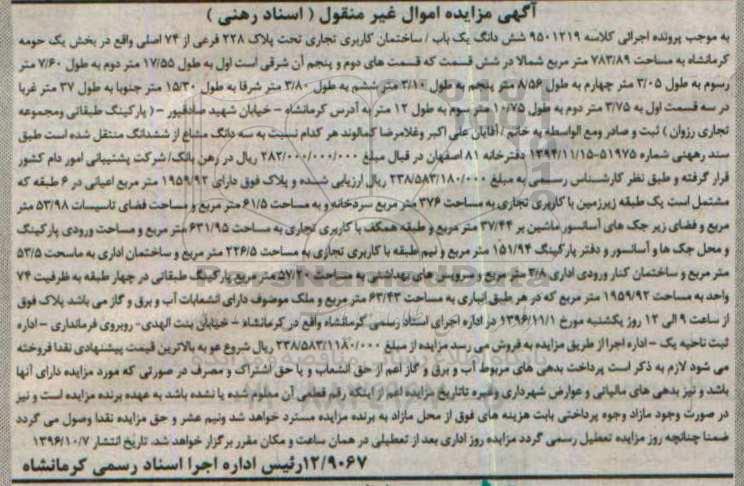 آگهی مزایده اموال غیر منقول ( اسناد رهنی )
به موجب پرونده اجرائی کلاسه ۹۵۰۱۲۱۹ شش دانگ یک باب / ساختمان کاربری تجاری تحت پلاک ۲۲۸ فرعی از ۷۴ اصلی واقع در بخش یک حومه
کرمانشاه به مساحت ۷۸۳/۸۹ متر مربع شمالا در شش قسمت که قسمت های دوم و پنجم آن شرقی است اول به طول ۱۷/۵۵ متر دوم به طول ۷/۶۰ متر
رسوم به طول ۳/۰۵ متر چهارم به طول ۸/۵۶ متر پنجم به طول ۳/۱۰ متر ششم به طول ۳/۸۰ متر شرقا به طول ۱۵/۳۰ متر جنوبا به طول ۳۷ متر غربا
در سه قسمت اول به ۳/۷۵ متر دوم به طول ۱۰/۷۵ متر سوم به طول ۱۲ متر به آدرس کرمانشاه - خیابان شهید صادقپور -( پارکینگ طبقاتی ومجموعه
تجاری رزوان ) ثبت و صادر ومع الواسطه به خانم / آقایان علی اکبر وغلامرضا کمالوند هر کدام نسبت به سه دانگ مشاع از ششدانگ منتقل شده است طبق
سند رهنی شماره ۵۱۹۷۵-۱۳۹۴/۱۱/۱۵ دفترخانه ۸۱ اصفهان در قبال مبلغ ۲۸۲/۰۰۰/۰۰۰/۰۰۰ ریال در رهن بانک/ شرکت پشتیبانی امور دام کشور
قرار گرفته و طبق نظر کارشناس رسمی به مبلغ ۲۳۸/۵۸۳/۱۸۰/۰۰۰ ریال ارزیابی شده و پلاک فوق دارای ۱۹۵۹/۹۲ متر مربع اعیانی در ۶ طبقه که
مشتمل است یک طبقه زیرزمین با کاربری تجاری به مساحت ۳۷۶ متر مربع سردخانه و به مساحت ۶۱/۵ متر مربع و مساحت فضای تاسیسات ۵۳/۹۸ متر
مربع و فضای زیر جک های آسانسور ماشین بر ۳۷/۴۴ متر مربع و طبقه همکف با کاربری تجاری به مساحت ۶۳۱/۹۵ متر مربع و مساحت ورودی پارکینگ
و محل جک ها و آسانسور و دفتر پارکینگ ۱۵۱/۹۴ متر مربع و نیم طبقه با کاربری تجاری به مساحت ۲۲۶/۵ متر مربع و ساختمان اداری به ماسحت ۵۳/۵
متر مربع و ساختمان کنار ورودی اداری ۳/۸ متر مربع و سرویس های بهداشتی به مساحت ۵۷/۲۰ متر مربع پارکینگ طبقاتی در چهار طبقه به ظرفیت ۷۴
واحد به مساحت ۱۹۵۹/۹۲ متر مربع که در هر طبق انباری به مساحت ۶۳/۴۳ متر مربع و ملک موضوف دارای انشعابات آب و برق و گاز می باشد پلاک فوق
از ساعت ۹ الی ۱۲ روز یکشنبه مورخ ۱۳۹۶/۱۱/۱ در اداره اجرای اسناد رسمی کرمانشاه واقع در کرمانشاه - خیابان بنت الهدی- روبروی فرمانداری - اداره
ثبت ناحیه یک - اداره اجرا از طریق مزایده به فروش می رسد مزایده از مبلغ ۲۳۸/۵۸۳/۱۱۸۰/۰۰۰ ریال شروع عو به بالاترین قیمت پیشنهادی نقدا فروخته
می شود لازم به ذکر است پرداخت بدهی های مربوط آب و برق و گاز اعم از حق انشعاب و یا حق اشتراک و مصرف در صورتی که مورد مزایده دارای آنها
باشد و نیز بدهی های مالیاتی و عوارض شهرداری وغیره تاتاریخ مزایده اعم از اینکه رقم قطعی آن معلوم شده یا نشده باشد به عهده برنده مزایده است و نیز
در صورت وجود مازاد وجوه پرداختی بابت هزینه های فوق از محل مازاد به برنده مزایده مسترد خواهد شد ونیم عشر و حق مزایده نقدا وصول می گردد
ضمنا چنانچه روز مزایده تعطیل رسمی گردد مزایده روز اداری بعد از تعطیلی در همان ساعت و مکان مقرر برگزار خواهد شد. تاریخ انتشار ۱۳۹۶/۱۰/۷
۱۲/۹۰۶۷رئیس اداره اجرا اسناد رسمی کرمانشاه